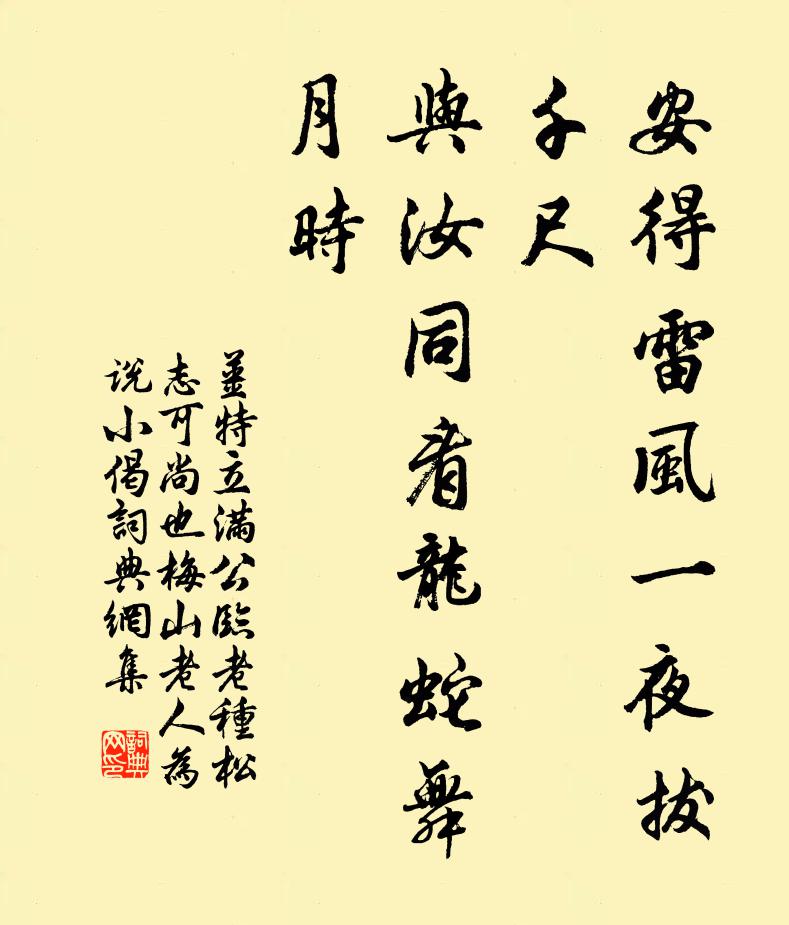 安得雷風一夜拔
千尺
與汝同看龍蛇舞
月時
薑特立滿公臨老種松
志可尚也梅山老人為
说小偈詞典網集
詞典
网印